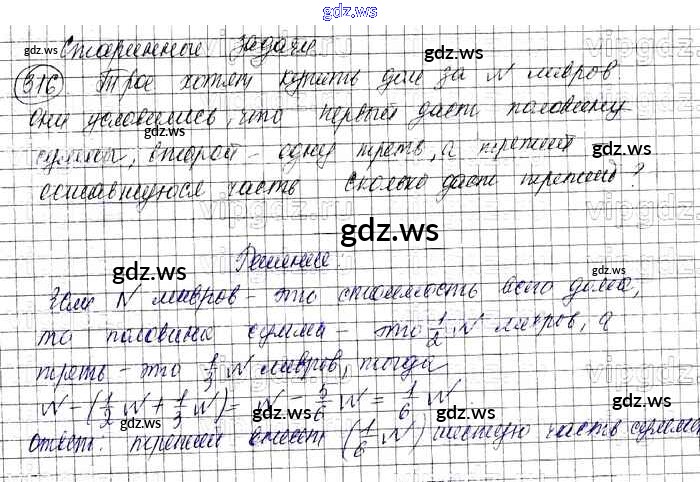 gdz.ws
Старинные задачи
316 Трое хотят купить дом за N ливров.
Они условились, что первый даст половину
суммы, второй - одну треть, а третий
оставшуюся часть. Сколько даст третий?
gdz.ws
Решение:
Если N ливров - это стоимость всего дома,
то половина суммы - это 1/2 N ливров, а
треть - это 1/3 N ливров, тогда
N - (1/2 N + 1/3 N) = N - 5/6 N = 1/6 N
Ответ: третий внесет (1/6 N) шестую часть суммы